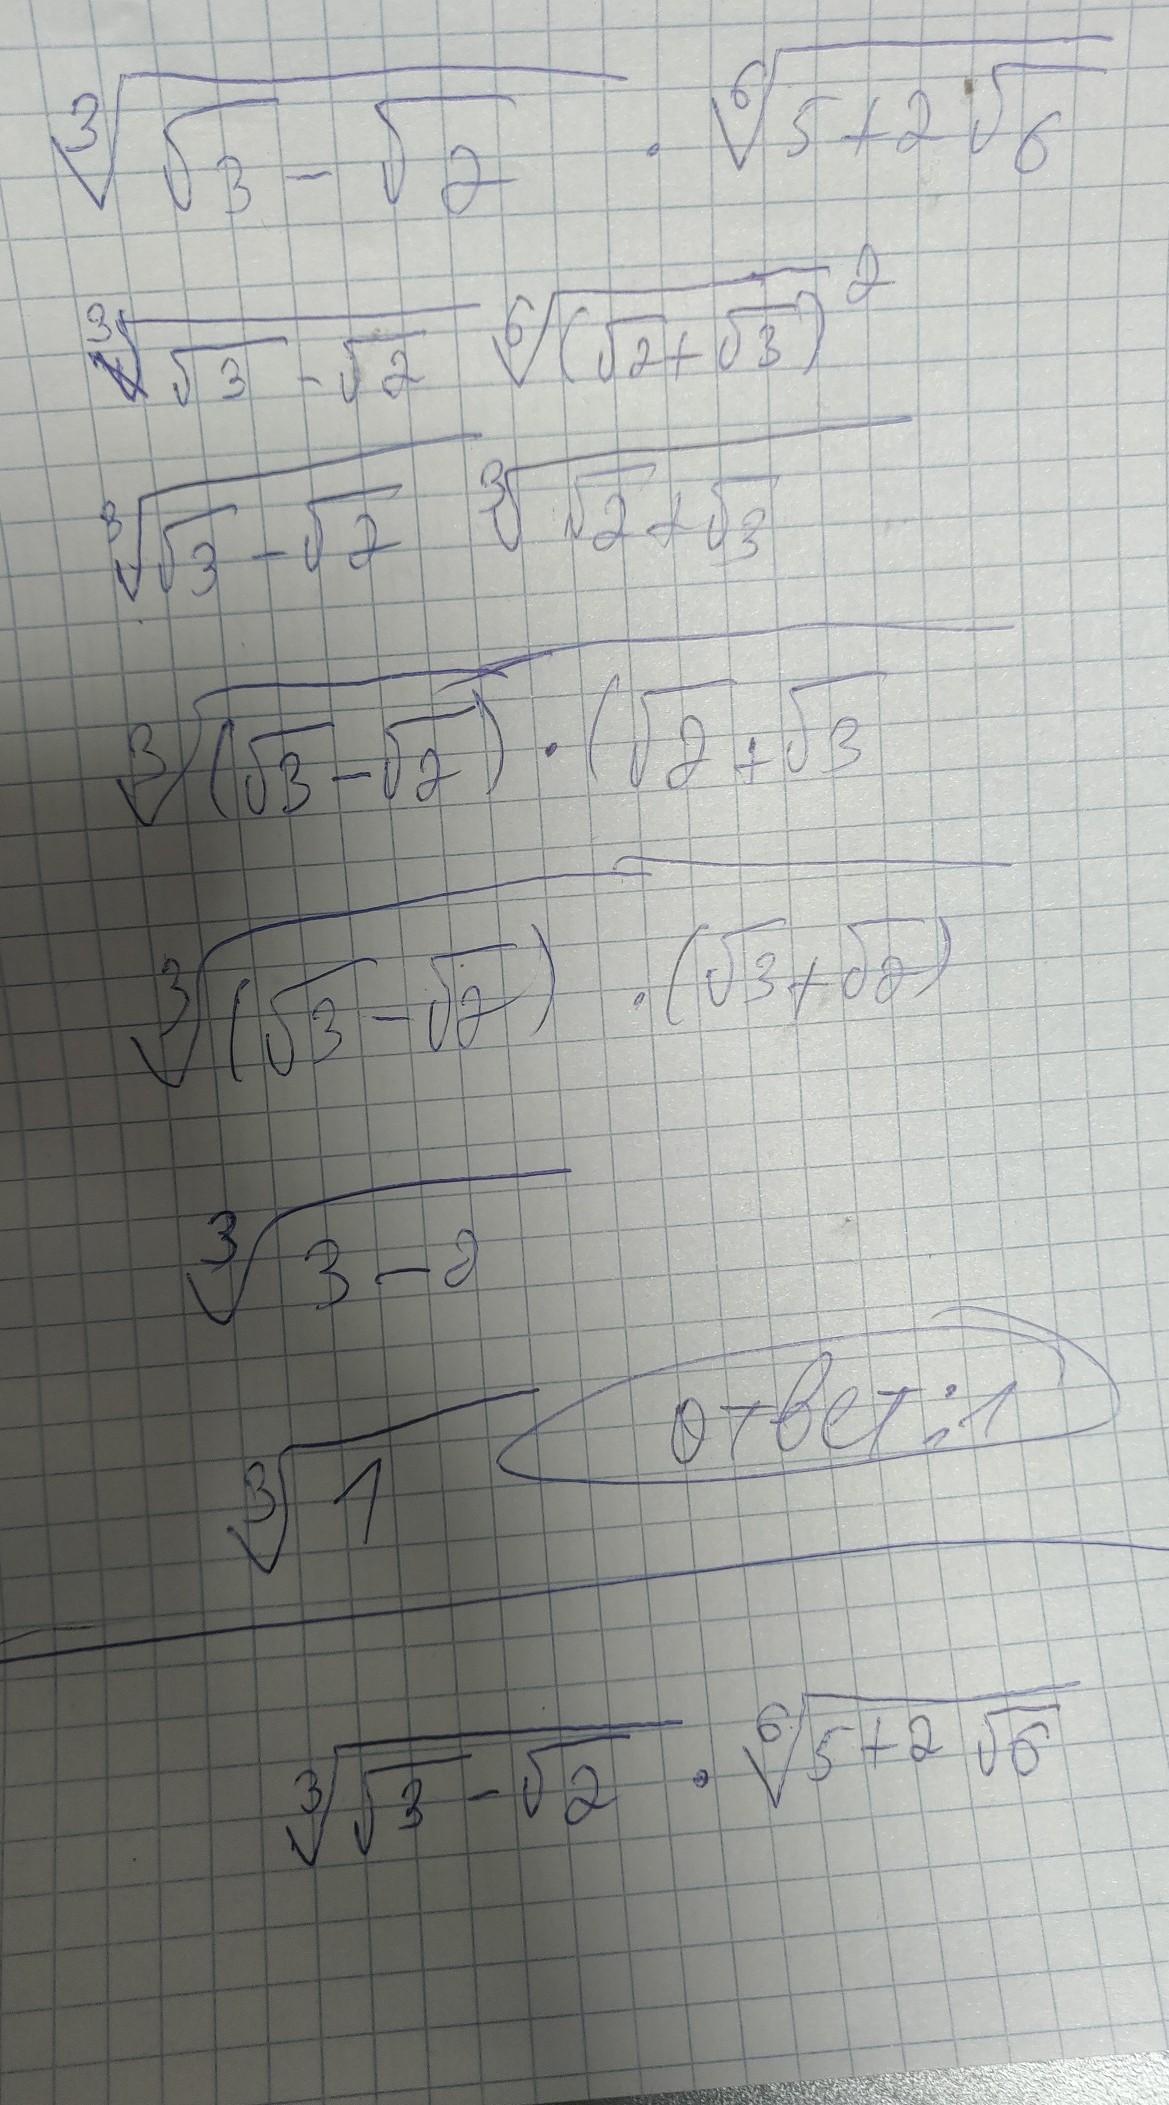 ∛(√3 − √2) · ⁶√(5 + 2√6)
∛(√3 − √2) ⁶√(√2 + √3)²
∛(√3 − √2) ∛(√2 + √3)
∛((√3 − √2) · (√2 + √3
∛((√3 − √2) · (√3 + √2))
∛(3 − 2)
∛1 ответ: 1
∛(√3 − √2) · ⁶√(5 + 2√6)